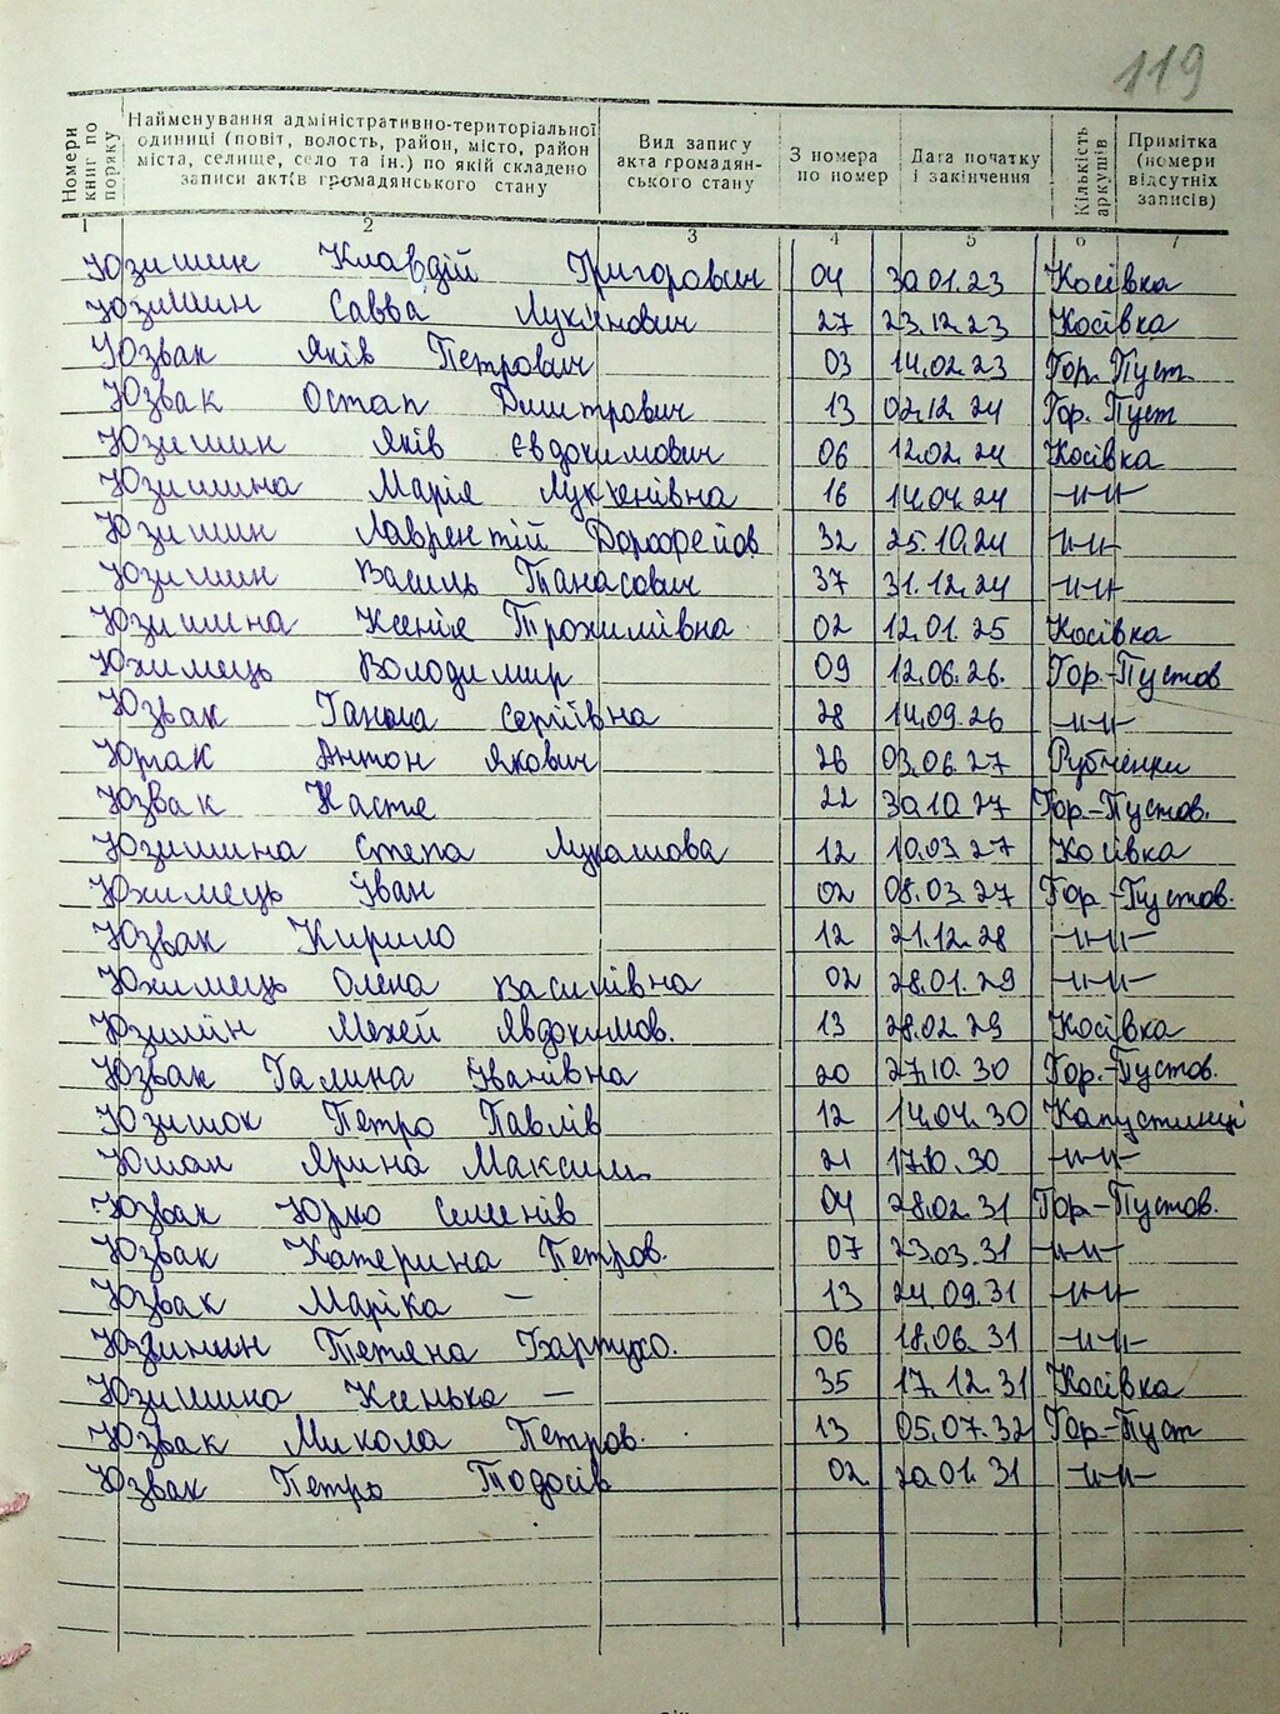 119
Номери книг по порядку
Найменування адміністративно-територіальної одиниці (повіт, волость, район, місто, район міста, селище, село та ін.) по якій складено записи актів громадянського стану
Вид запису акта громадян-ського стану
З номера по номер
Дата початку і закінчення
Кількість аркушів
Примітка (номери відсутніх записів)
1 2 3 4 5 6 7
Юзишин Клавдій Григорович 04 30.01.23 Косівка
Юзишин Савва Лук'янович 27 23.12.23 Косівка
Юзвак Яків Петрович 03 14.02.23 Гор. Пуст.
Юзвак Остап Дмитрович 13 02.12.24 Гор. Пуст
Юзишин Яків Євдокимович 06 12.02.24 Косівка
Юзишина Марія 16 14.04.24 -//-//-
Юзишин Лаврентій Дорофейов 32 25.10.24 -//-//-
Юзишин Василь Танасович 37 31.12.24 -//-//-
Юзишина Ксенія Трохимівна 02 12.01.25 Косівка
Юхимець Володимир 09 12.06.26. Гор.-Пустов
Юзвак Ганна Сергіївна 28 14.09.26 -//-//-
Антон Якович 26 03.06.27 Рубченки
Юзвак Настя 22 30.10.27 Гор-Пустов.
Юзишина Степа Лукашова 12 10.03.27 Косівка
Юхимець Іван 02 08.03.27 Гор-Пустов.
Юзвак Кирило 12 21.12.28 -//-//-
Юхимець Олена Василівна 02 28.01.29 -//-//-
Явдокимов. 13 28.02.29 Косівка
Юзвак Галина Іванівна 20 27.10.30 Гор.-Пустов.
Юзишок Петро Павлів 12 14.04.30 Капустинці
Ярина Максим. 21 17.10.30 -//-//-
Юзвак Юрко Семенів 04 28.02.31 Гор-Пустов.
Юзвак Катерина Петров. 07 23.03.31 -//-//-
Юзвак Маріка – 13 24.09.31 -//-//-
Юзишин Тетяна 06 18.06.31 -//-//-
Юзишина Ксенька – 35 17.12.31 Косівка
Юзвак Микола Петров. 13 05.07.32 Гор-Пуст
Юзвак Петро Тодосів 02 20.01.31 -//-//-